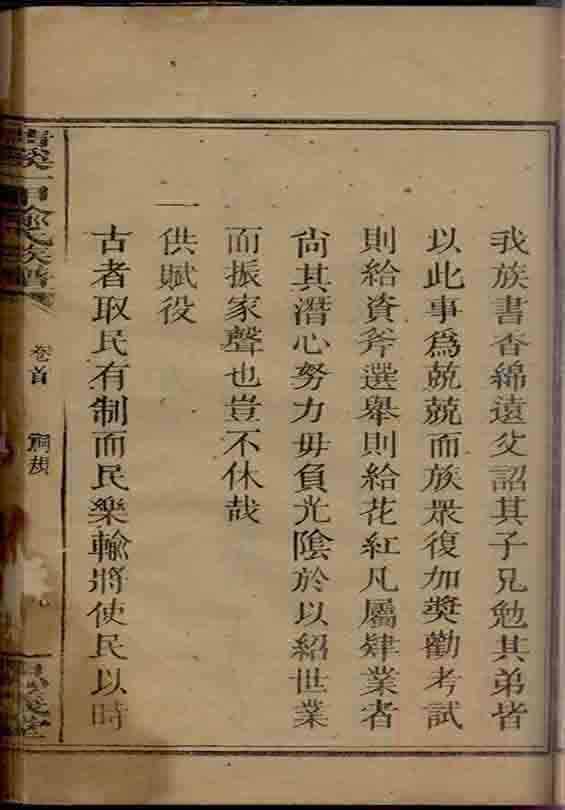 我族書香綿遠父詔其子兄勉其弟皆
以此事爲兢兢而族眾復加奬勸考試
則給資斧選舉則給花紅凡屬肄業者
尙其潛心努力毋負光陰於以紹世業
而振家聲也豈不休哉
一供賦役
古者取民有制而民樂輸將使民以時
清溪一甲俞氏族譜
卷首
祠規